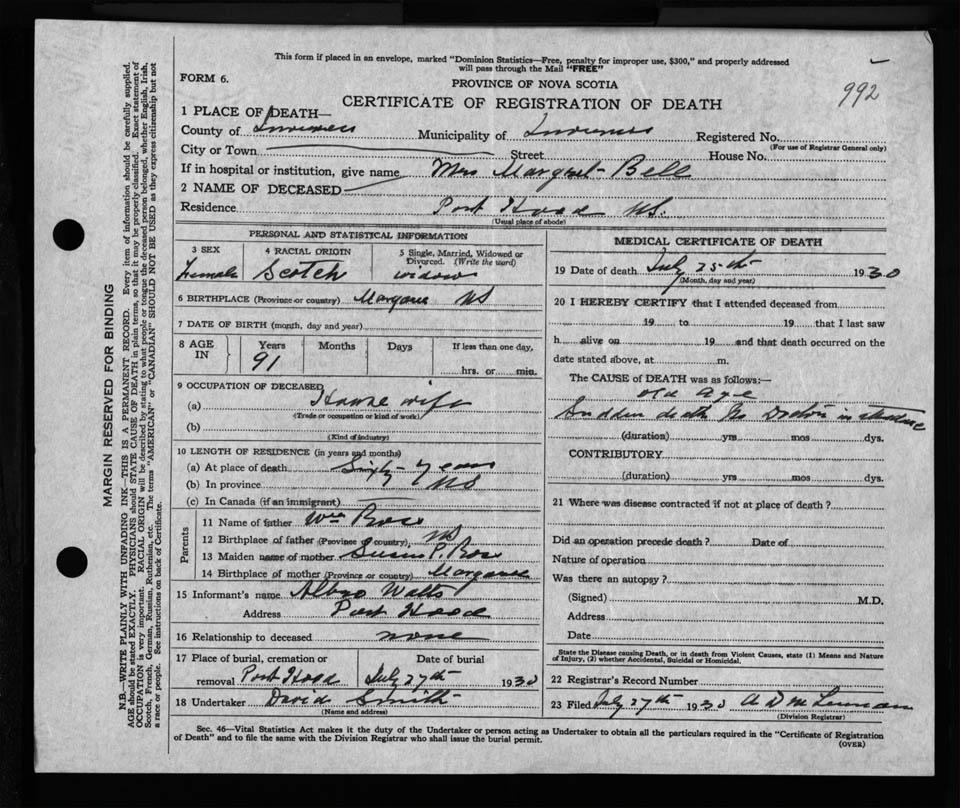 This form if placed in an envelope, marked "Dominion Statistics—Free, penalty for improper use, $300," and properly addressed
will pass through the Mail "FREE"
992
FORM 6.
PROVINCE OF NOVA SCOTIA
CERTIFICATE OF REGISTRATION OF DEATH
1 PLACE OF DEATH—
County of Inverness Municipality of Inverness Registered No.
(For use of Registrar General only)
City or Town Street House No.
If in hospital or institution, give name Mrs Margret Bell
2 NAME OF DECEASED
Residence Port Hood NS.
(Usual place of abode)
PERSONAL AND STATISTICAL INFORMATION
3 SEX 4 RACIAL ORIGIN 5 Single, Married, Widowed or
Divorced. (Write the word)
Female Scotch widow
6 BIRTHPLACE (Province or country) Margaree NS
7 DATE OF BIRTH (month, day and year)
8 AGE IN Years Months Days If less than one day,
91 hrs. or min.
9 OCCUPATION OF DECEASED
(a) House wife
(Trade or occupation or kind of work)
(b)
(Kind of industry)
10 LENGTH OF RESIDENCE (in years and months)
(a) At place of death Sixty years
(b) In province NS
(c) In Canada (if an immigrant)
Parents
11 Name of father Wm Ross
12 Birthplace of father (Province or country) NS
13 Maiden name of mother Susan P. Ross
14 Birthplace of mother (Province or country) Margaree
15 Informant's name Watts
Address Port Hood
16 Relationship to deceased none
17 Place of burial, cremation or Date of burial
removal Port Hood July 27th 1930
18 Undertaker David Smith
(Name and address)
MEDICAL CERTIFICATE OF DEATH
19 Date of death July 25th 1930
(Month, day and year)
20 I HEREBY CERTIFY that I attended deceased from
19 to 19 that I last saw
h alive on 19 and that death occurred on the
date stated above, at m.
The CAUSE of DEATH was as follows:—
old Age
Sudden death No Doctor in
(duration) yrs mos dys.
CONTRIBUTORY
(duration) yrs mos dys.
21 Where was disease contracted if not at place of death?
Did an operation precede death? Date of
Nature of operation
Was there an autopsy?
(Signed) M.D.
Address
Date
State the Disease causing Death, or in death from Violent Causes, state (1) Means and Nature
of Injury, (2) whether Accidental, Suicidal or Homicidal.
22 Registrar's Record Number
23 Filed July 27th 1930 A D
(Division Registrar)
Sec. 46—Vital Statistics Act makes it the duty of the Undertaker or person acting as Undertaker to obtain all the particulars required in the "Certificate of Registration
of Death" and to file the same with the Division Registrar who shall issue the burial permit.
(OVER)
MARGIN RESERVED FOR BINDING
N.B.—WRITE PLAINLY WITH UNFADING INK—THIS IS A PERMANENT RECORD. Every item of information should be carefully supplied.
AGE should be stated EXACTLY. PHYSICIANS should STATE CAUSE OF DEATH in plain terms, so that it may be properly classified. Exact statement of
OCCUPATION is very important. RACIAL ORIGIN will be described by stating to what people or tongue the deceased person belonged, whether English, Irish,
Scotch, French, German, Russian, Ruthenian, etc. The terms "AMERICAN" or "CANADIAN" SHOULD NOT BE USED as they express citizenship but not
a race or people. See instructions on back of Certificate.